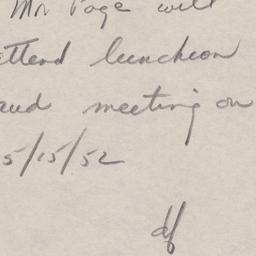 Mr Page will
attend luncheon
and meeting on
5/15/52
df